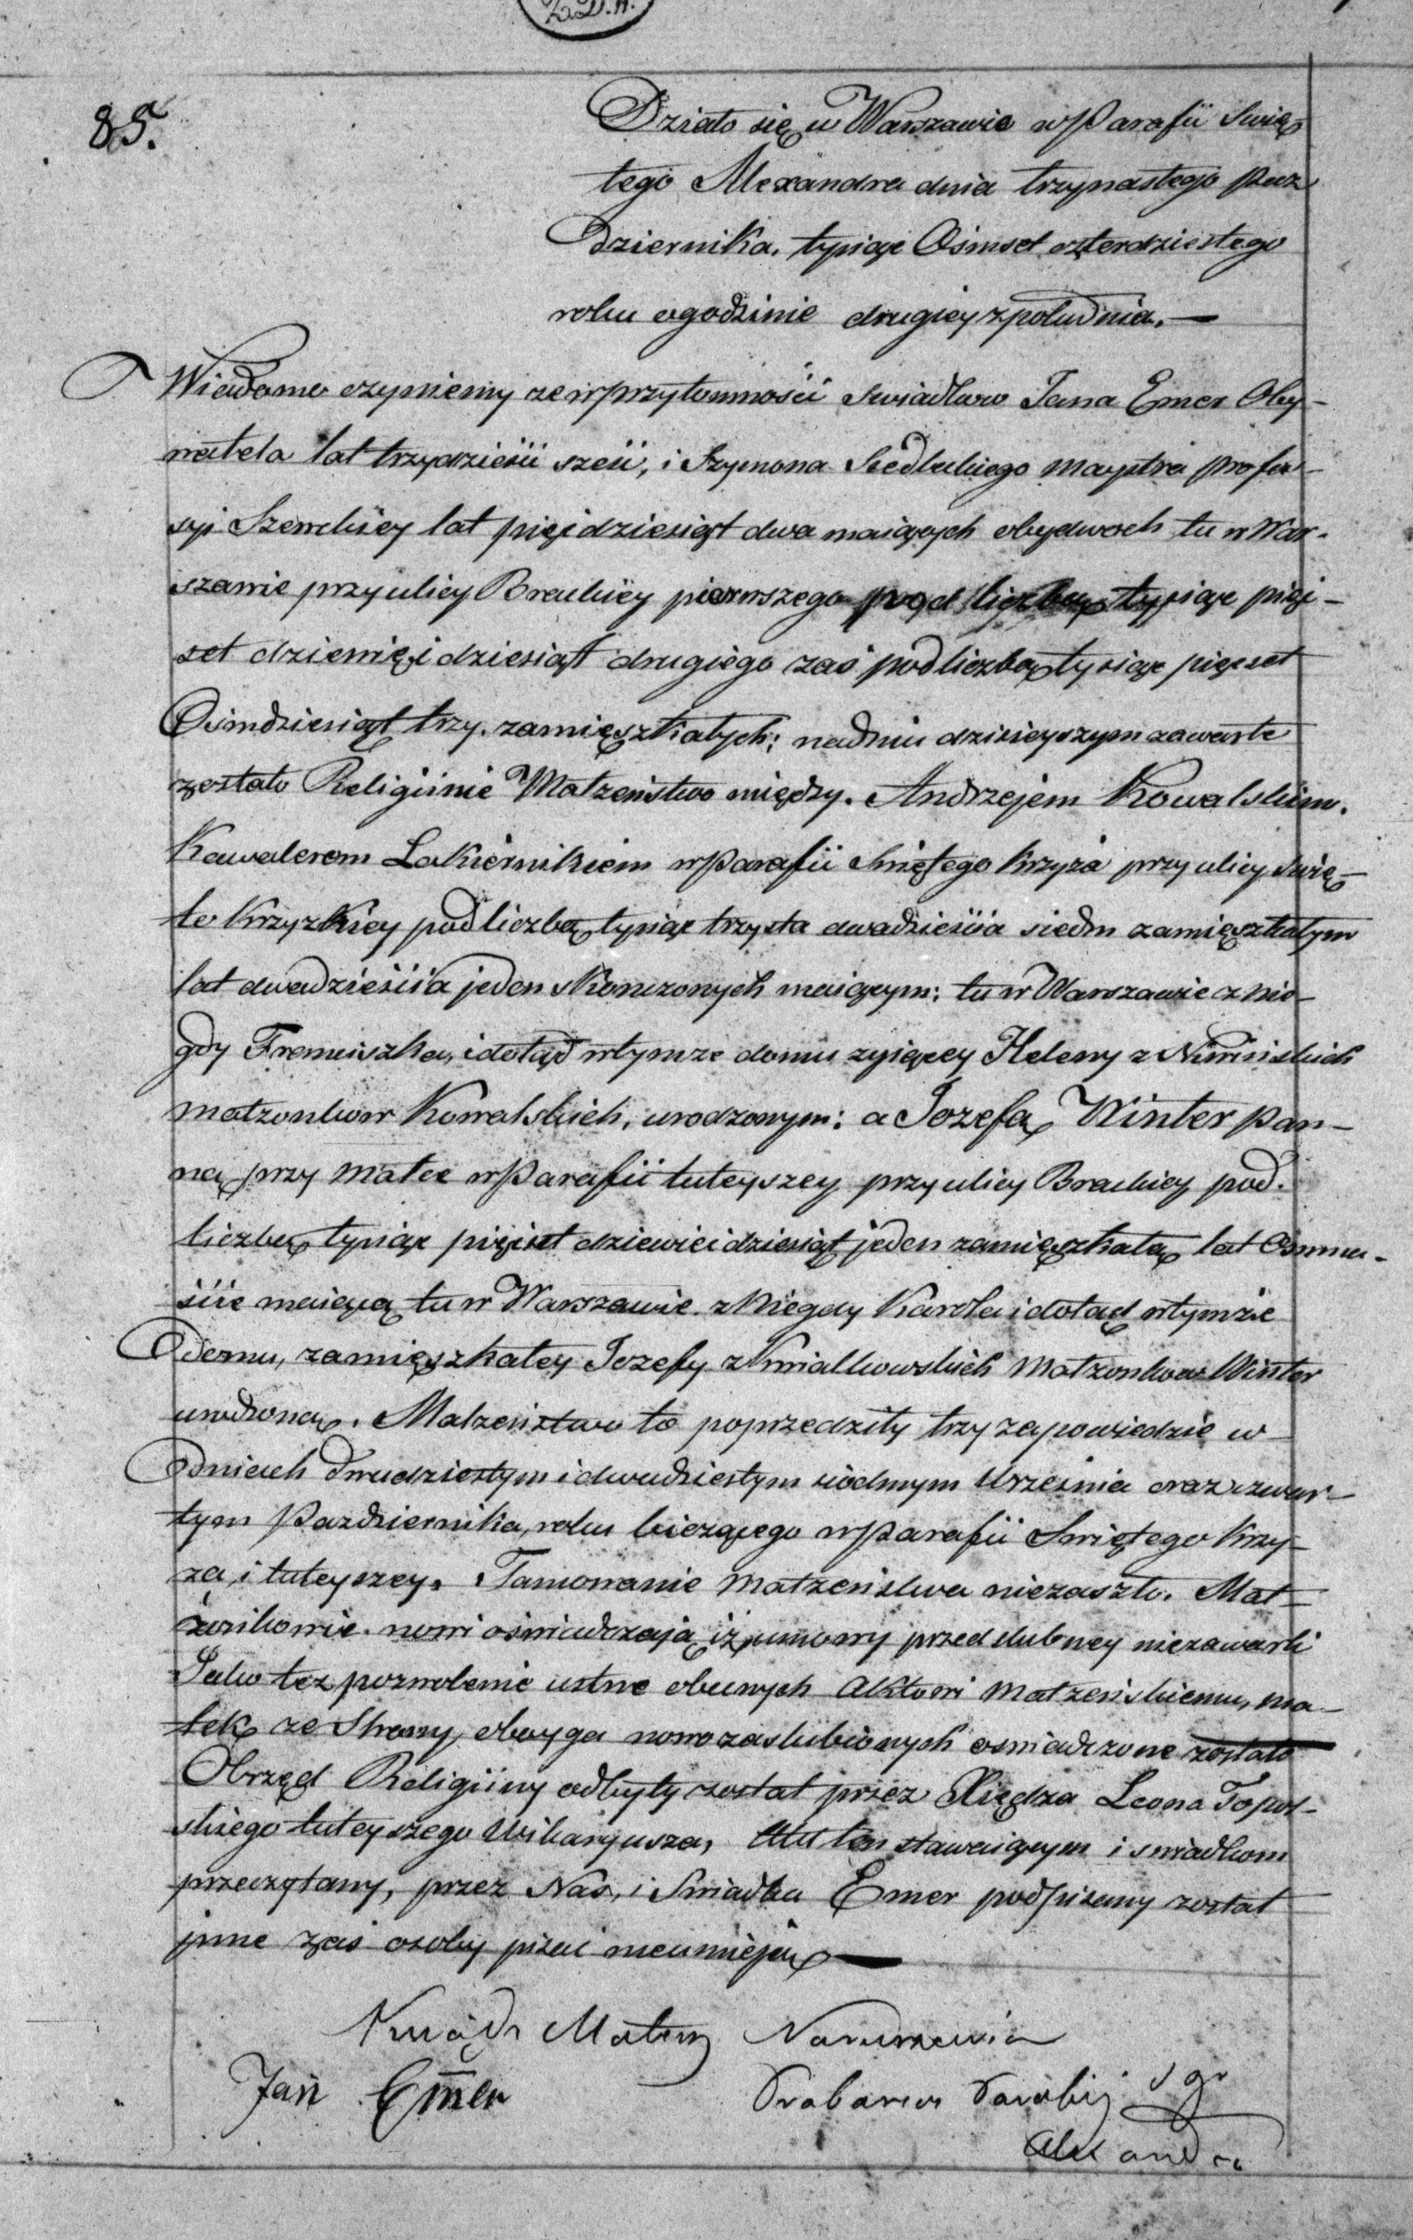 Z.D.A.
85.
Działo się w Warszawie w Parafii Swię-
tego Alexandra dnia trzynastego paz
dziernika, tysiąc Ośmset czterdziestego
roku o godzinie drugiey z południa. —
Wiadomo czyniemy ze w przytomności swiadkow Jana Emer Oby-
watela lat trzydzieści sześć, i Szymona Siedleckiego maystra profes-
syi Szewckiey lat pięćdziesiąt dwa maiących obydwoch tu w War-
szawie przy ulicy Brackiey pierwszego pod liczbą tysiąc pięć-
set dziewięćdziesiąt drugiego zaś pod liczbą tysiąc pięcset
Ośmdziesiąt trzy zamięszkałych; na dniu dzisieyszym zawarte
zostało Religiinie Małzeństwo między. Andrzejem Kowalskim.
Kawalerem Lakiernikiem w Parafii Świętego Krzyża przy ulicy Swię-
to Krzyzkiey pod liczbą tysiąc trzysta dwadzieścia siedm zamięszkałym
lat dwadzieścia jeden skończonych maiącym; tu w Warszawie z nie-
gdy Franciszka, i dotąd w tymze domu zyiącey Heleny z Niwińskich
małzonkow Kowalskich, urodzonym: a Jozefą Winter pan-
ną przy matce w Parafii tuteyszey przy ulicy Brackiey pod
liczbą tysiąc pięćset dziewiećdziesiąt jeden zamięszkałą lat Ośmna-
ście maiącą tu w Warszawie z niegdy Karola i dotąd w tymże
domu, zamięszkałey Jozefy z Kwiatkowskich małzonkow Winter
urodzoną. Malzeństwo to poprzedziły trzy zapowiedzie w
dniach dwudziestym i dwudziestym siódmym Września oraz czwar-
tym Pazdziernika, roku bieżącego w Parafii Świętego Krzy-
za, i tuteyszey. Tamowanie małzeństwa niezaszło. Mał-
żonkowie nowi oświadczają iż umowy przedslubney niezawarli
Jako tez pozwolenie ustne obecnych Aktowi małzeńskiemu, ma-
tek ze Strony oboyga nowozaslubionych oswiadczone zostało
Obrzęd Religiiny odbyty został przez Xiędza Leona Topol-
skiego tuteyszego Wikaryusza, Akt ten stawaiącym i swiadkom
przeczytany, przez Nas, i Swiadka Emer podpisany został
jnne zaś osoby pisać nieumieją —
Xsiądz Mateusz
Jan Emer